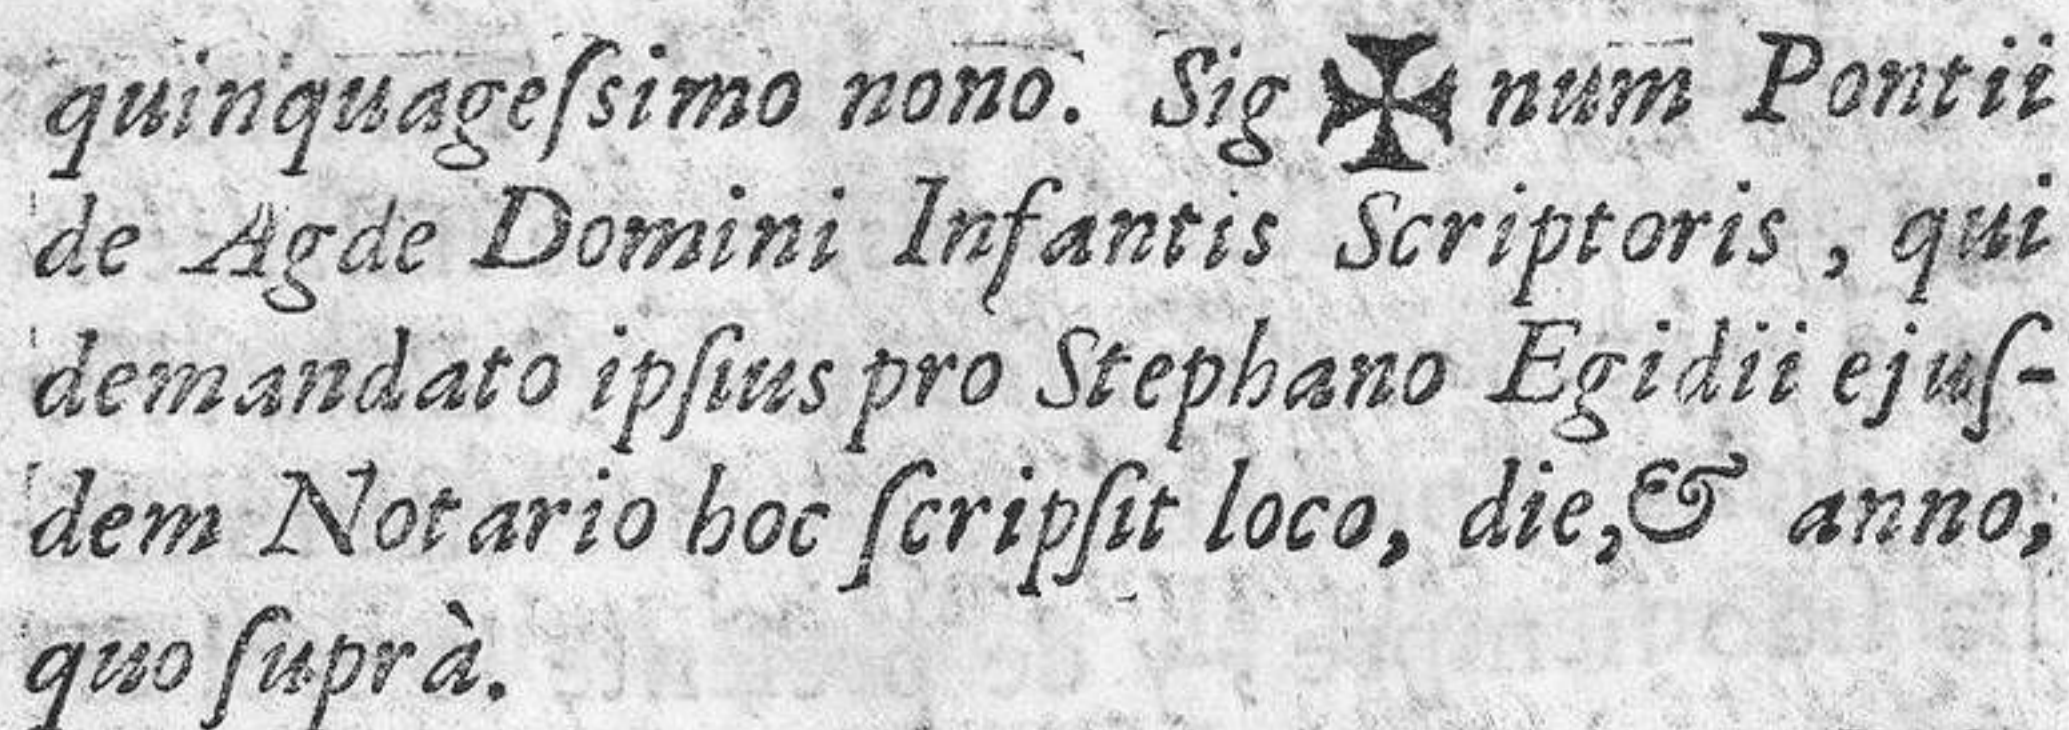 quinquageſsimo nono. Sig ✠ num Pontii
de Agde Domini Infantis Scriptoris, qui
demandato ipſius pro Stephano Egidii ejuſ-
dem Notario hoc ſcripſit loco, die, & anno,
quo ſuprà.